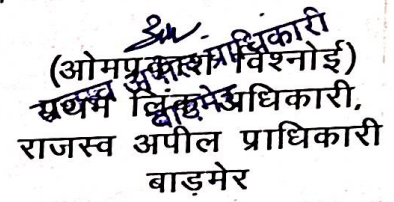 (ओमप्रकाश विश्नोई)
प्रथम लिंक अधिकारी,
राजस्व अपील प्राधिकारी
बाड़मेर
राजस्व अपील प्राधिकारी
बाड़मेर